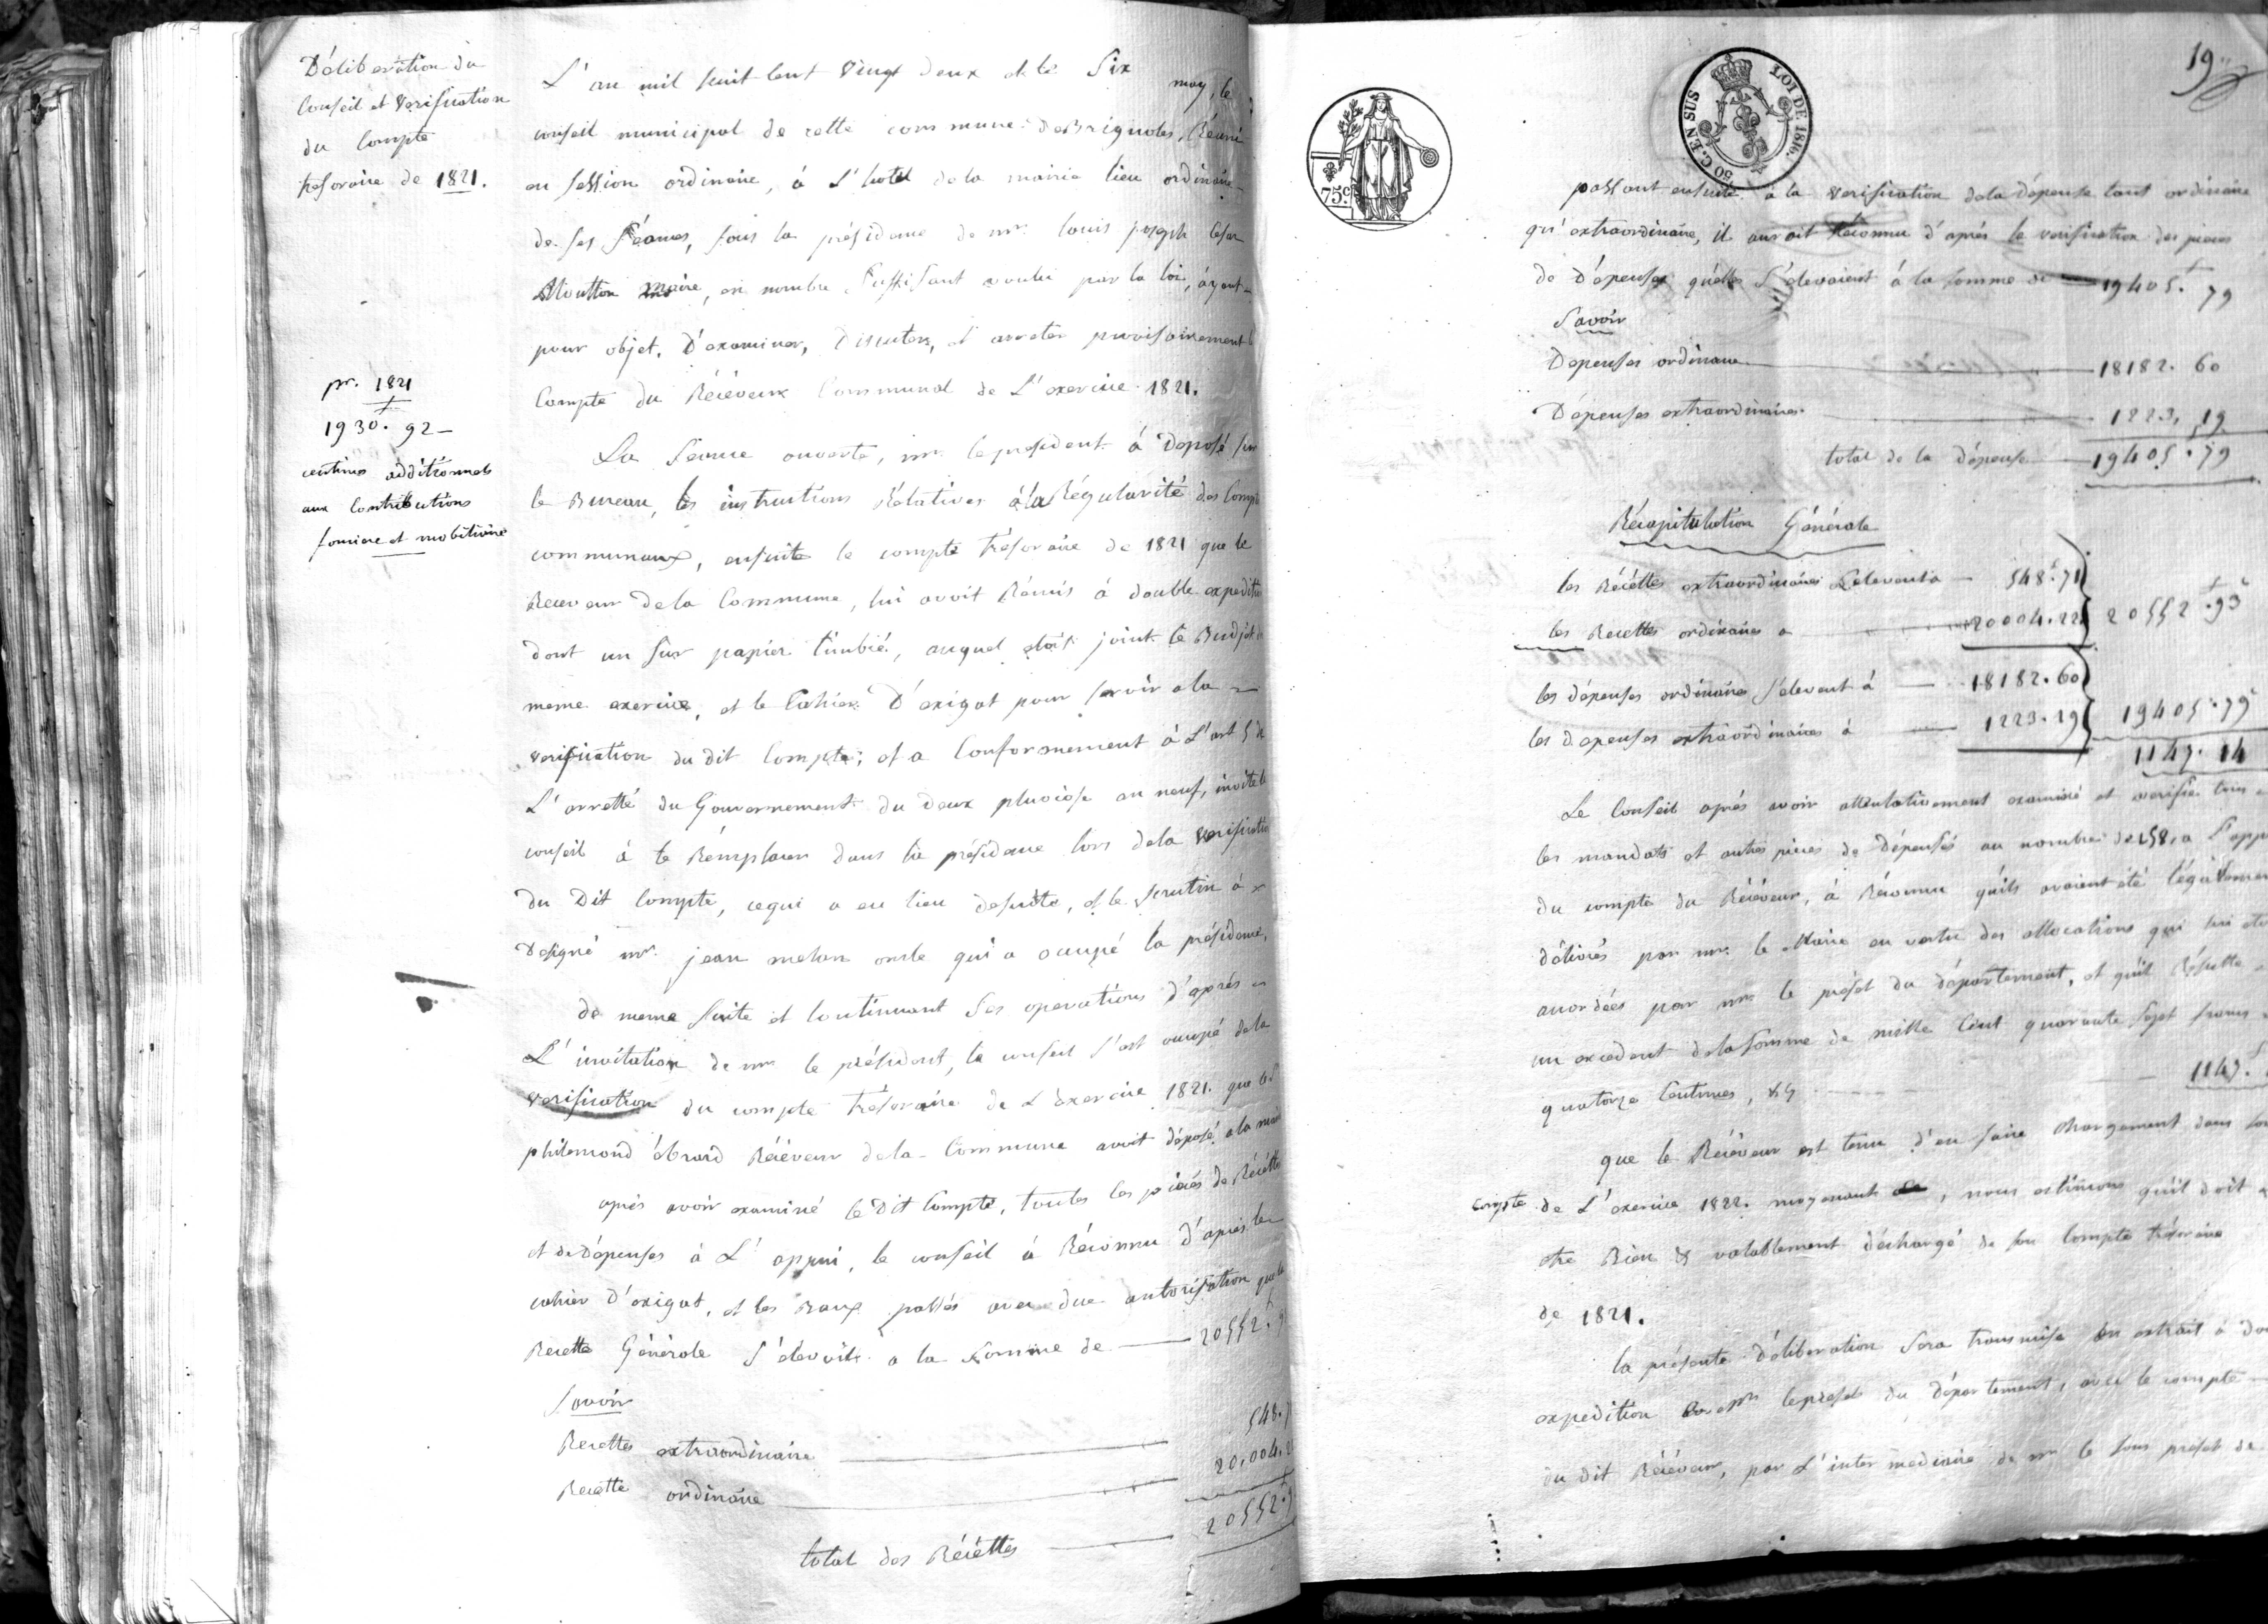 Déliberation du
Conseil et Verification
du Compte
tresoraire de 1821.
pr. 1821
1930.f 92
centimes additionnels
aux Contributions
fonciere et mobiliaire
L'an mil huit Cent Vingt deux et le Six may, le
conseil municipal de cette commune de Brignoles, Réuni
en session ordinaire, à L'hotel de la mairie lieu ordinaire
de ses séances, sous la présidence de mr. louis joseph Cesar
Moutton maire, en nombre suffisant voulu par la loi, ayant
pour objet, D'examiner, Discuter, et arreter provisoirement le
Compte du Récéveur Communal de L'exercice 1821.
La Seance ouverte, mr. le president à Déposé sur
le Bureau, les instructions Rélatives à la Régularité des Compte
communaux, ensuite le compte trésoraire de 1821 que le
Receveur de la Commune, lui avoit Rémis à double expeditio
dont un sur papier timbré, auquel etoit joint le Budjet
meme exercice, et le Cahier D'exigat pour servir a la
verification du dit Compte; et a Conformement à L'art 5 de
L'arretté du Gouvernement du Deux pluviose an neuf, invité le
conseil à le Remplacer dans la présidence lors de la verificatio
du Dit Compte, ce qui a eu lieu de suite, et le scrutin à
Designé mr. jean melan oncle qui a occupé la présidence,
de meme suite et Continuant ses operations d'aprés
L'invitation de mr le président, le conseil s'est occupé de la
verification du compte trésoraire de L'exercice 1821. que le
philemond ébrard Récéveur de la Commune avoit déposé a la
aprés avoir examiné le Dit Compte, toutes les piéces de Récétte
et de Dépenses à L'appui, le conseil à Réconnu d'aprés le
cahier d'exigat, et les Baux passés avec due autorisation que la
Recette Générale s'élevoit à la Somme de 20552.f 9
Savoir
Recettes extraordinaire 548.7
Recette ordinaire 20,004.2
total des Récéttes 20552.f 9
19
75.c
50 C. EN SUS
LOI DE 1816.
passant ensuite à la verification de la dépense tant ordinaire
qu'extraordinaire, il auroit Réconnu d'aprés la verification des pieces
de Dépenses quelles s'élevaient à la somme de 19405.f 79
Savoir
Depenses ordinaire 18182. 60
Dépenses extraordinaires 1223. 19
total de la dépense 19405.f 79
Récapitulation Générale
les Récéttes extraordinaires s'elevent à 548.f 71
les Recettes ordinaires a 20004.22 20552.f 93c
les dépenses ordinaires s'élevent à 18182.60
les dépenses extraordinaires à 1223.19 19405.79c
1147. 14
Le Conseil aprés avoir attentativement examiné et verifié tous
les mandats et autres piéces de Dépenses au nombre de 258, a L'appui
du compte du Récéveur, à Réconnu qu'ils avaient été légalement
délivrés par mr. le Maire en vertu des allocations qui lui
accordées par mr le préfet du département, et qu'il Résulte
un excedent de la somme de mille Cent quarante sept francs
quatorze Centimes, 1147.
que le Récéveur est tenu d'en faire Chargement dans son
Compte de L'exercice 1822. moyenant , nous estimons qu'il doit
être Bien & valablement déchargé de son Compte trésoraire
de 1821.
la présente déliberation sera transmise en extrait à double
expedition a mr le préfet du Département, avec le compte
du dit Récéveur, par L'intermediaire de mr le sous préfet de